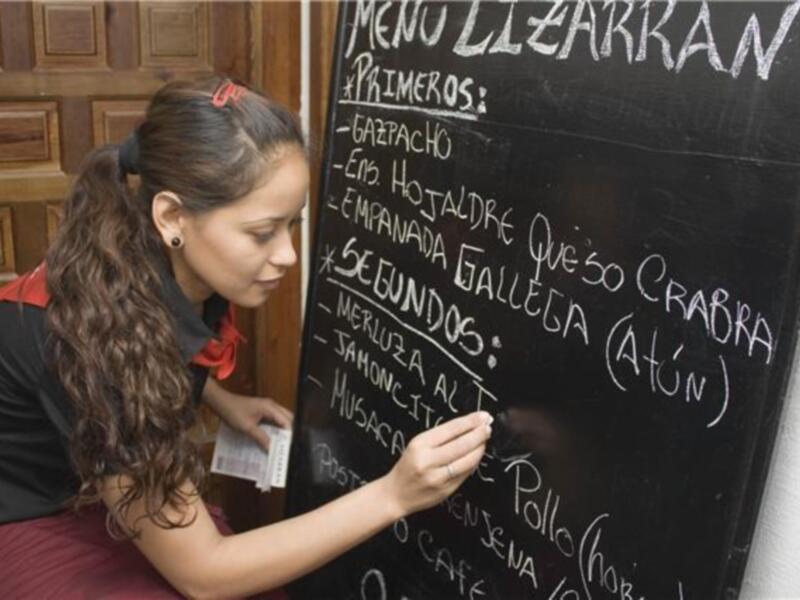 MENÚ LIZARRÁN
*PRIMEROS:
-GAZPACHO
-ENS. HOJALDRE QUESO CRABRA
-EMPANADA GALLEGA (ATÚN)
*SEGUNDOS:
- MERLUZA AL
- JAMONCIT E POLLO (hor
- MUSACA ENJENA
POST O CAFE